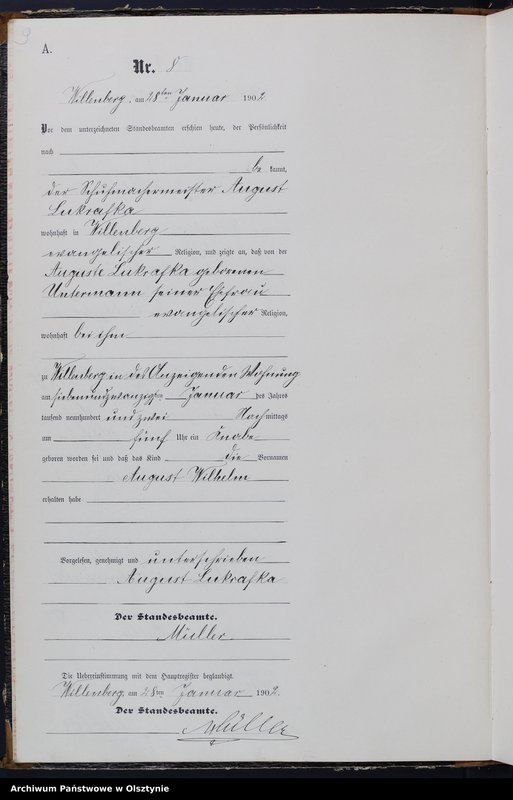 9
A.
Nr. 8
Willenberg, am 28ten Januar 1902.
Vor dem unterzeichneten Standesbeamten erschien heute, der Persönlichkeit
nach
be kannt,
der Schuhmachermeister August
Lukrafka
wohnhaft in Willenberg
evangelischer Religion, und zeigte an, daß von der
Auguste Lukrafka geborenen
Untermann seiner Ehefrau
evangelischer Religion,
wohnhaft bei ihm
zu Willenberg in des Anzeigenden Wohnung
am siebenundzwanzigsten Januar des Jahres
tausend neunhundert und zwei Nach mittags
um fünf Uhr ein Knabe
geboren worden sei und daß das Kind die Vornamen
August Wilhelm
erhalten habe
Vorgelesen, genehmigt und unterschrieben
August Lukrafka
Der Standesbeamte.
Müller
Die Uebereinstimmung mit dem Hauptregister beglaubigt.
Willenberg, am 28ten Januar 1902.
Der Standesbeamte.
Müller
Archiwum Państwowe w Olsztynie